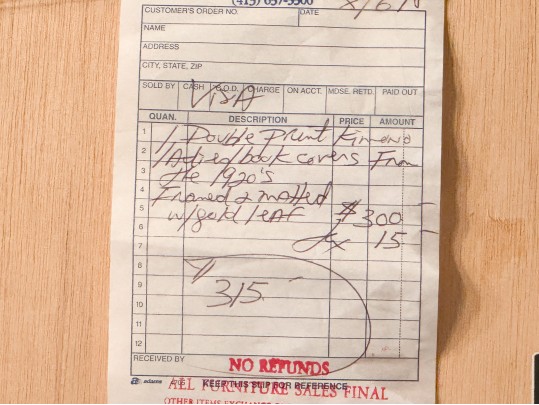 CUSTOMER'S ORDER NO. DATE
NAME
ADDRESS
CITY, STATE, ZIP
SOLD BY CASH C.O.D. CHARGE ON ACCT. MDSE. RETD. PAID OUT
VISA
QUAN. DESCRIPTION PRICE AMOUNT
1 1 Double print Kimono
2 book covers From
3 the 1920's
4 Framed & matted
5 w/gold leaf $300
6 tx 15
7
8
9 315
10
11
12
RECEIVED BY
NO REFUNDS
adams KEEP THIS SLIP FOR REFERENCE
ALL FURNITURE SALES FINAL